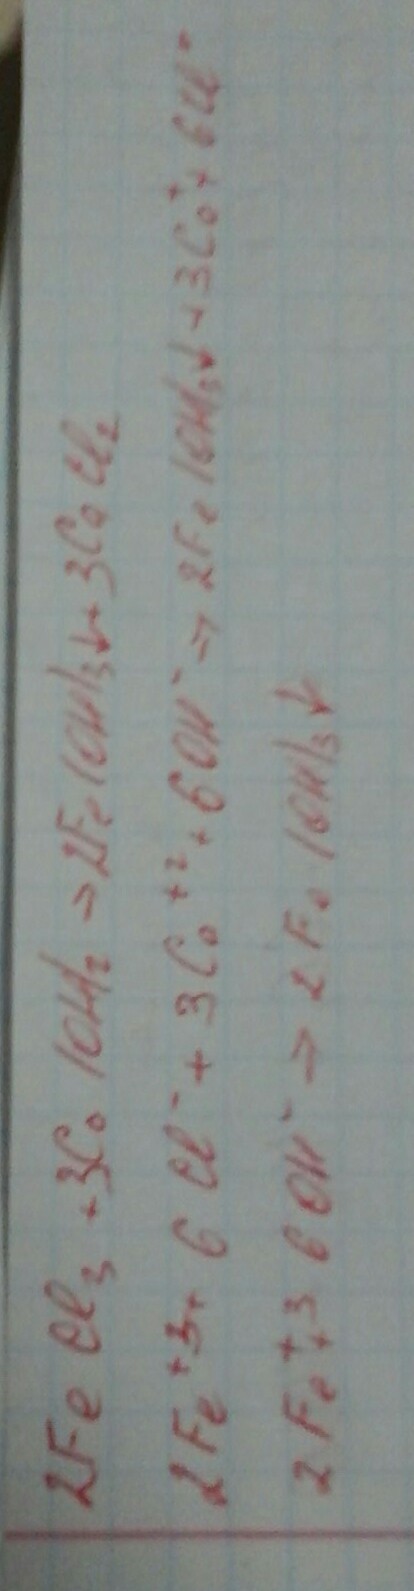 2FeCl₃ + 3Ca(OH)₂ → 2Fe(OH)₃↓ + 3CaCl₂
2Fe⁺³ + 6Cl⁻ + 3Ca⁺² + 6OH⁻ → 2Fe(OH)₃↓ + 3Ca⁺ + 6Cl⁻
2Fe⁺³ + 6OH⁻ → 2Fe(OH)₃↓